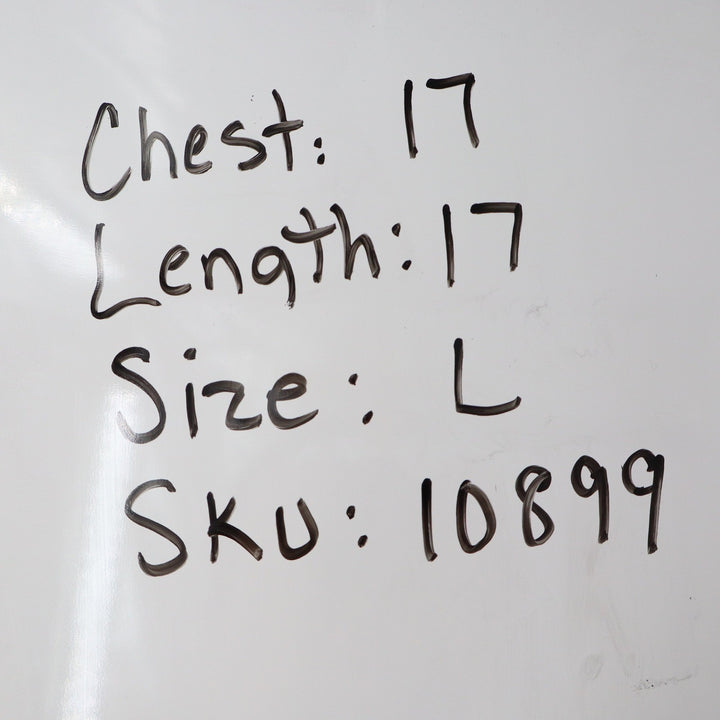 Chest: 17
Length: 17
Size: L
SKU: 10899